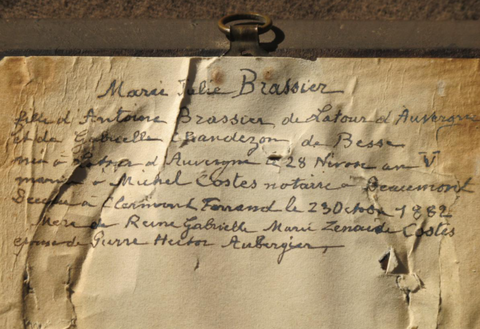 Marie Julie Brassier
fille d'Antoine Brassier de Latour d'Auvergne
et de Gabrielle Chandezon de Besse
née à d'Auvergne le 28 Nivose an V
mariée à Michel Costes notaire à Beaumont
Décédée à Clermont Ferrand le 23 Octobre 1882
Mère de Reine Gabrielle Marie Zenaide Costes
épouse de Pierre Hector Aubergier